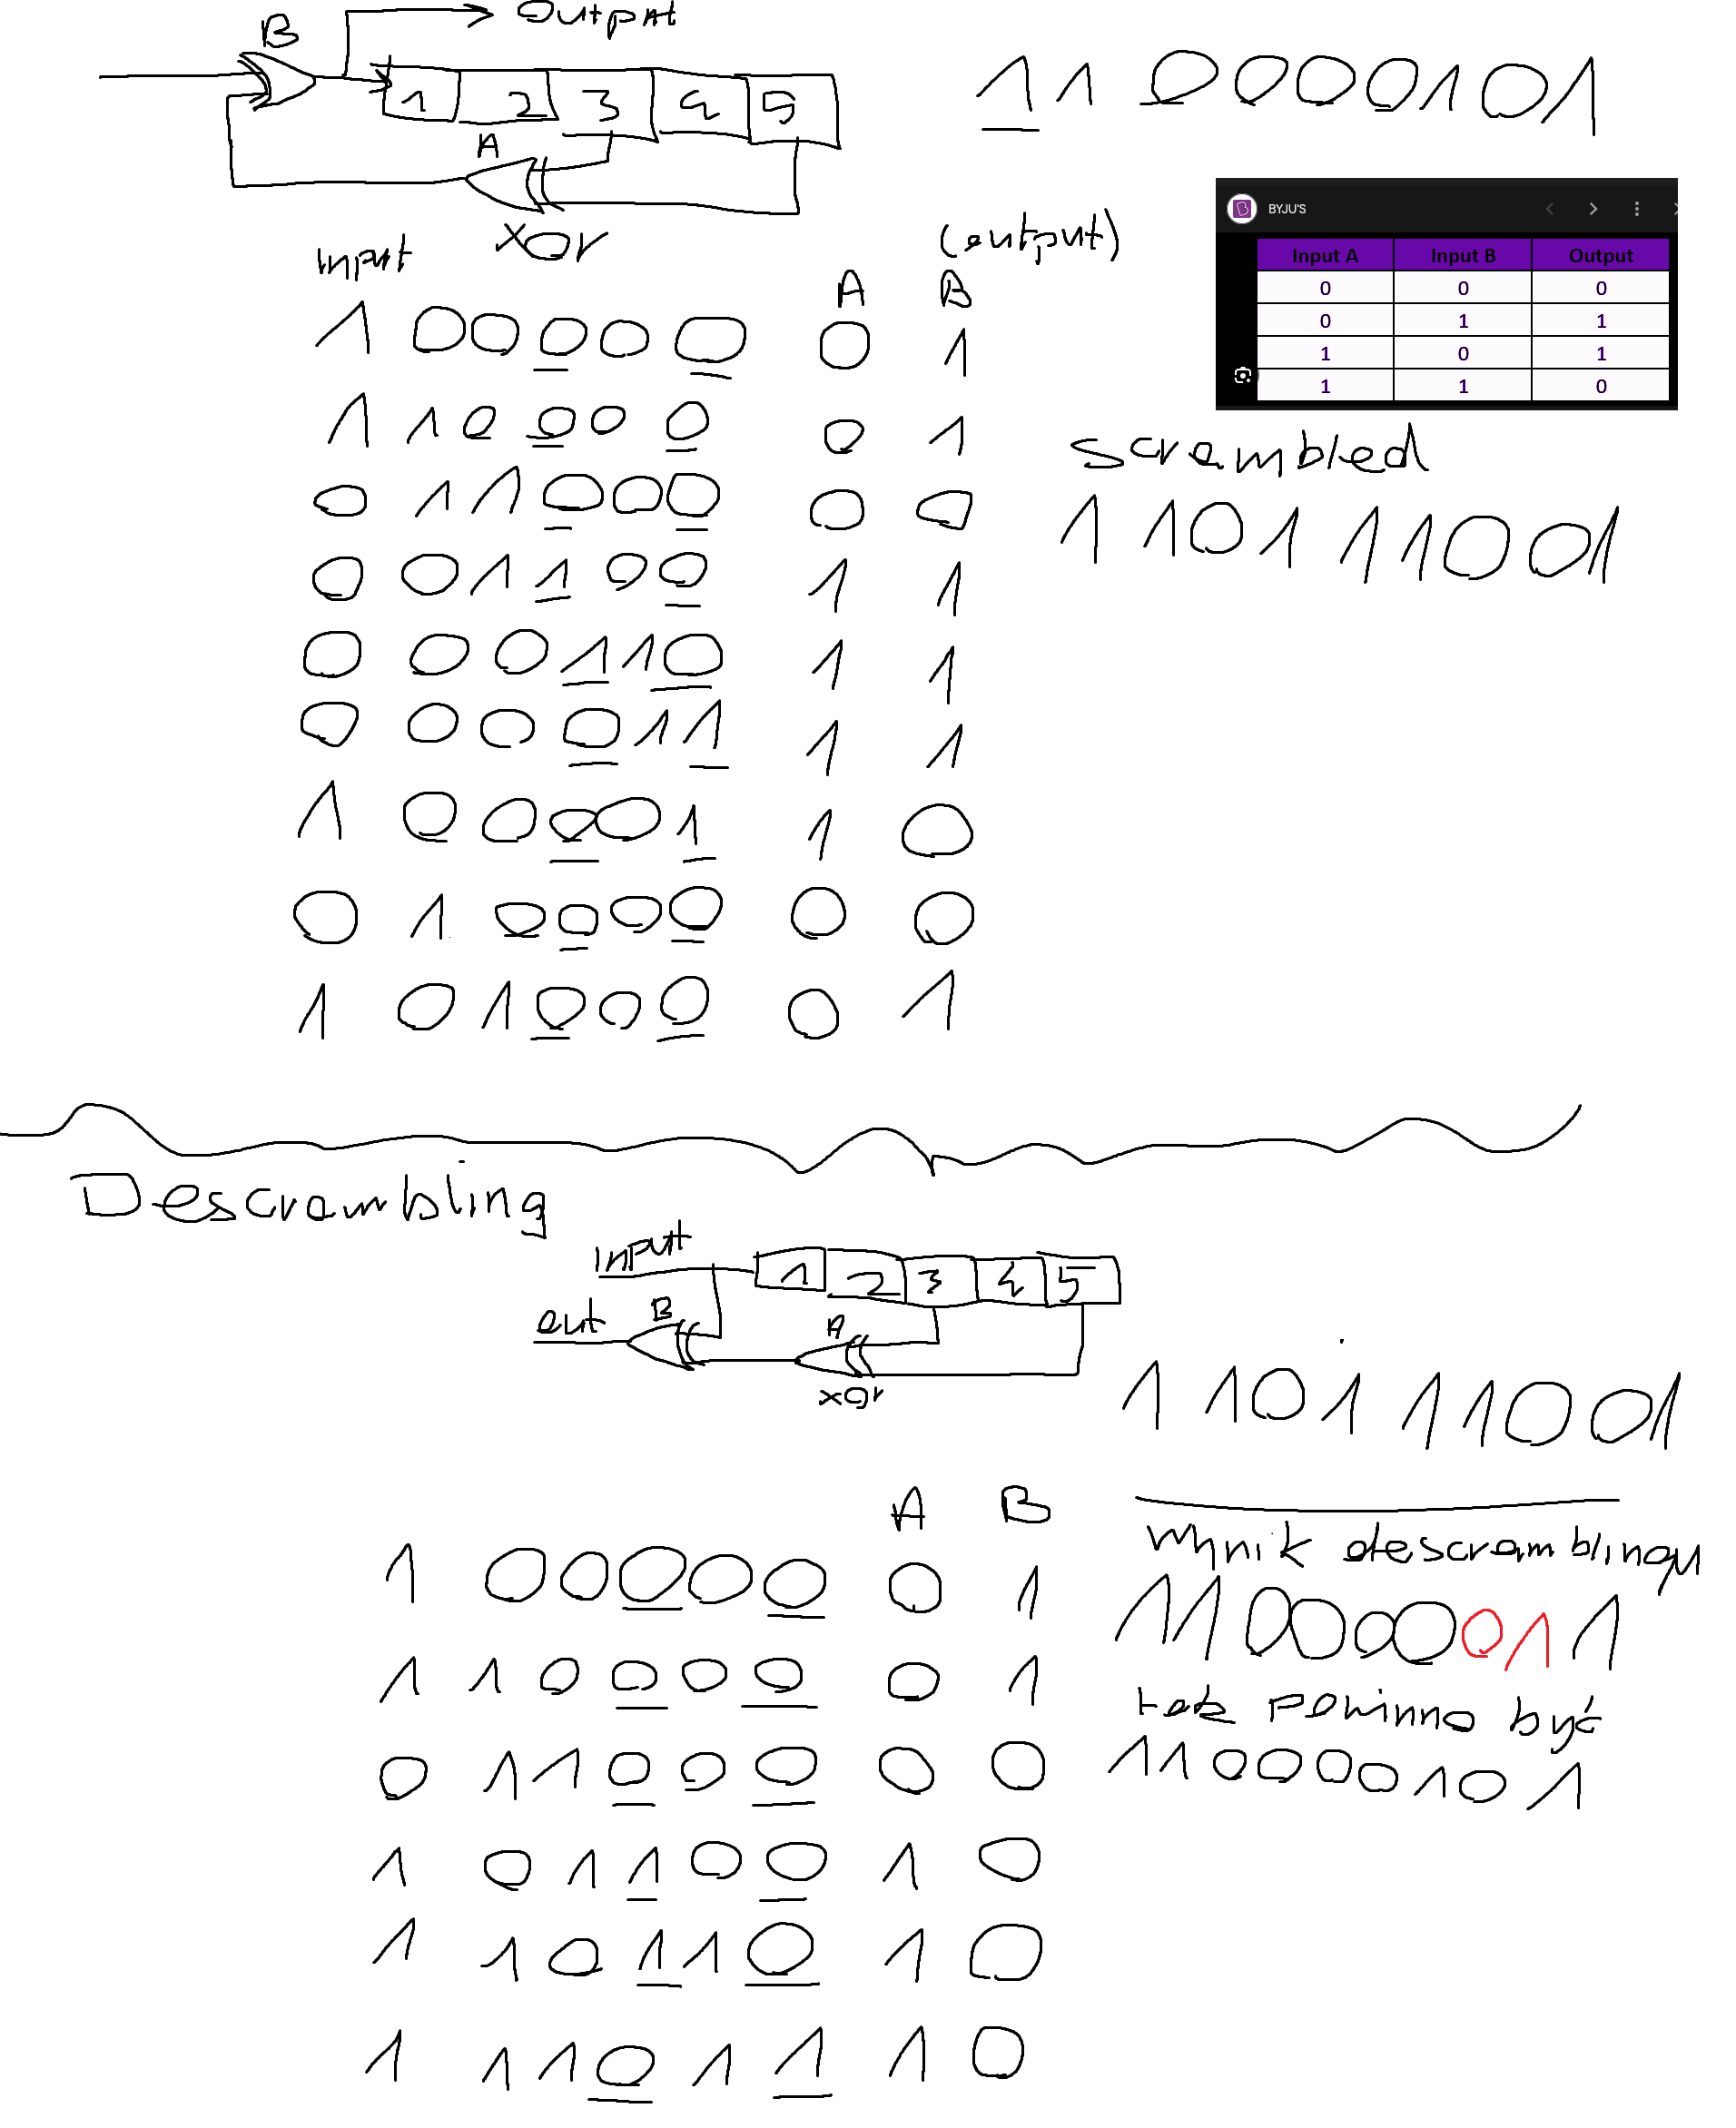 Output
B
1 2 3 4 5
A
xor
11 0000101
BYJU'S
Input A Input B Output
0 0 0
0 1 1
1 0 1
1 1 0
input (output)
A B
1 00000 0 1
1 10000 0 1
0 11000 0 0
0 01100 1 1
0 00110 1 1
0 00011 1 1
1 00001 1 0
0 10000 0 0
1 01000 0 1
scrambled
1 101 11001
Descrambling
input
1 2 3 4 5
out B A
xor
1 101 11001
A B
1 00000 0 1
1 10000 0 1
0 11000 0 0
1 01100 1 0
1 10110 1 0
1 11011 1 0
wynik descramblingu
110000011
tak powinno być
110000101